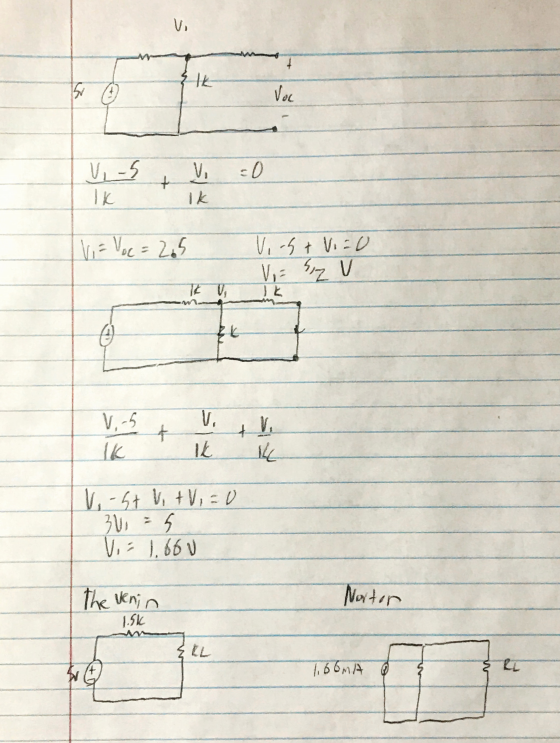 V₁
5V
1K
+
Voc
-
V₁ - 5 / 1K + V₁ / 1K = 0
V₁ = Voc = 2.5
V₁ - 5 + V₁ = 0
V₁ = 5/2 V
1K V₁ 1K
K
V₁ - 5 / 1K + V₁ / 1K + V₁ / 1K
V₁ - 5 + V₁ + V₁ = 0
3V₁ = 5
V₁ = 1.66V
Thevenin
Norton
1.5K
5V
RL
1.66mA
RL